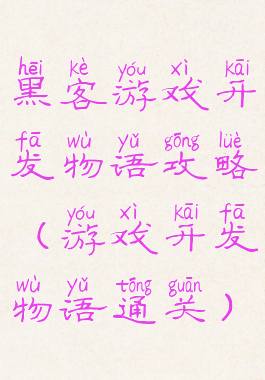 hēi kè yóu xì kāi
黑客游戏开
fā wù yǔ gōng lüè
发物语攻略
yóu xì kāi fā
（游戏开发
wù yǔ tōng guān
物语通关）